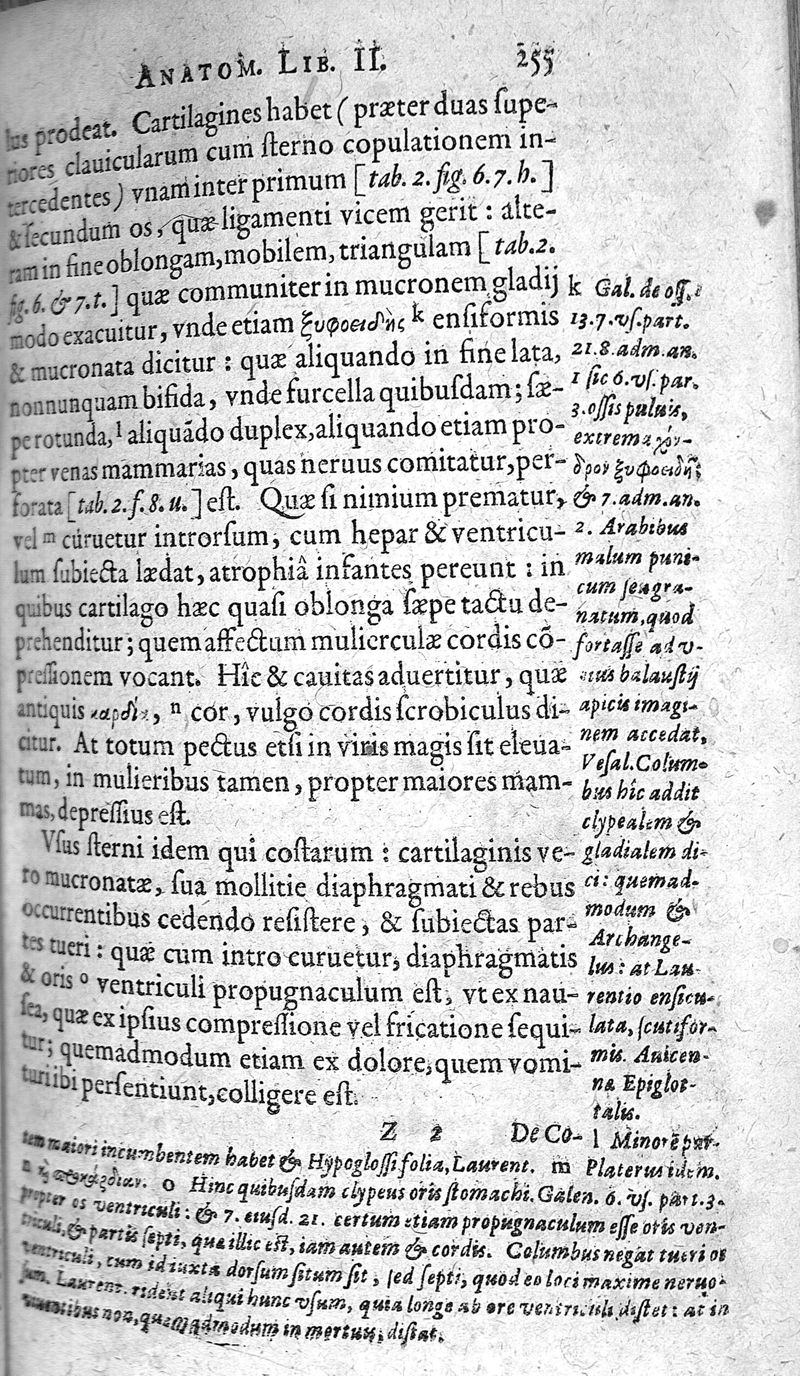 ANATOM. LIB. II. 255
lus prodeat. Cartilagines habet (præter duas ſupe-
riores clauicularum cum ſterno copulationem in-
tercedentes) vnam inter primum [tab. 2. fig. 6. 7. h.]
& ſecundum os, quæ ligamenti vicem gerit : alte-
ram in fine oblongam, mobilem, triangulam [tab. 2.
fig. 6. & 7. t.] quæ communiter in mucronem gladij
modo exacuitur, vnde etiam ξυφοειδὴς k enſiformis
& mucronata dicitur : quæ aliquando in fine lata,
nonnunquam bifida, vnde furcella quibuſdam; ſæ-
pe rotunda, l aliquādo duplex, aliquando etiam pro-
pter venas mammarias, quas neruus comitatur, per-
forata [tab. 2. f. 8. u.] eſt. Quæ ſi nimium prematur,
vel m curuetur introrſum, cum hepar & ventricu-
lum ſubiecta lædat, atrophiâ infantes pereunt : in
quibus cartilago hæc quaſi oblonga ſæpe tactu de-
prehenditur; quem affectum mulierculæ cordis cō-
preſſionem vocant. Hîc & cauitas aduertitur, quæ
antiquis καρδία, n cor, vulgo cordis ſcrobiculus di-
citur. At totum pectus etſi in viris magis ſit eleua-
tum, in mulieribus tamen, propter maiores mam-
mas, depreſſius eſt.
Vſus ſterni idem qui coſtarum : cartilaginis ve-
ro mucronatæ, ſua mollitie diaphragmati & rebus
occurrentibus cedendo reſiſtere, & ſubiectas par-
tes tueri : quæ cum intro curuetur, diaphragmatis
& oris o ventriculi propugnaculum eſt, vt ex nau-
ſea, quæ ex ipſius compreſſione vel fricatione ſequi-
tur; quemadmodum etiam ex dolore, quem vomi-
turi ibi perſentiunt, colligere eſt.
Z 2 De Co-
k Gal. de oſſ.
13. 7. vſ. part.
21. 8. adm. an.
1 ſic 6. vſ. par.
3. oſſis puluis,
extrema χόν-
δρον ξυφοειδῆ;
& 7. adm. an.
2. Arabibus
malum puni-
cum ſeu gra-
natum, quod
fortaſſe ad v-
nius balauſtij
apicis imagi-
nem accedat,
Veſal. Colum-
bus hîc addit
clypealem &
gladialem di-
ci : quemad-
modum &
Archange-
lus : at Lau-
rentio enſicu-
lata, ſcutifor-
mis. Auicen-
na Epiglot-
talis.
l Minorē par-
tem maiori incumbentem habet & Hypogloſſi folia, Laurent. m Platerus idem.
n o Hinc quibuſdam clypeus oris ſtomachi. Galen. 6. vſ. part. 3.
propter os ventriculi : & 7. eiuſd. 21. certum etiam propugnaculum eſſe oris ven-
triculi, & partis ſepti, quæ illic eſt, iam autem & cordis. Columbus negat tueri os
ventriculi, cum id iuxta dorſum ſitum ſit, ſed ſepti, quod eo loci maxime neruo-
ſum. Laurent. rident aliqui hunc vſum, quia longe ab ore ventriculi diſtet : at in
viuentibus non, quemadmodum in mortuis, diſtat.